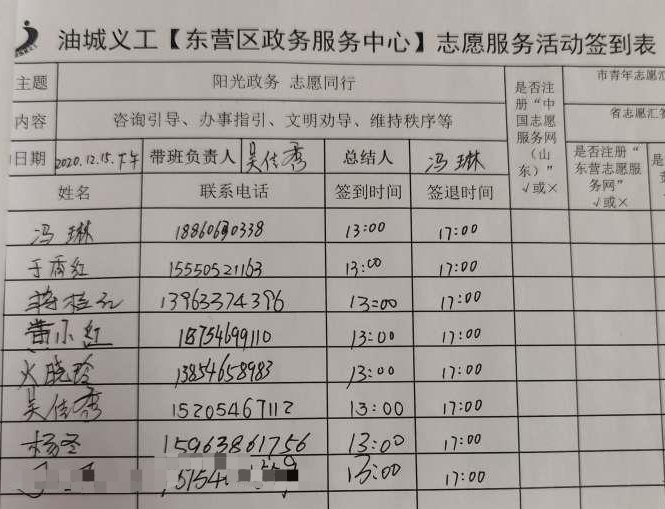 油城义工【东营区政务服务中心】志愿服务活动签到表
主题 阳光政务 志愿同行
内容 咨询引导、办事指引、文明劝导、维持秩序等
日期 2020.12.15.下午 带班负责人 吴佳秀 总结人 冯琳
是否注册“中国志愿服务网(山东)”√或×
市青年志愿汇
省志愿汇
是否注册“东营志愿服务网”√或×
是
姓名 联系电话 签到时间 签退时间
冯琳 18860630338 13:00 17:00
于秀红 15550521163 13:00 17:00
13963374396 13:00 17:00
黄小红 18754699110 13:00 17:00
火晓玲 13854658983 13:00 17:00
吴佳秀 15205467112 13:00 17:00
杨冬 15963861756 13:00 17:00
13:00 17:00